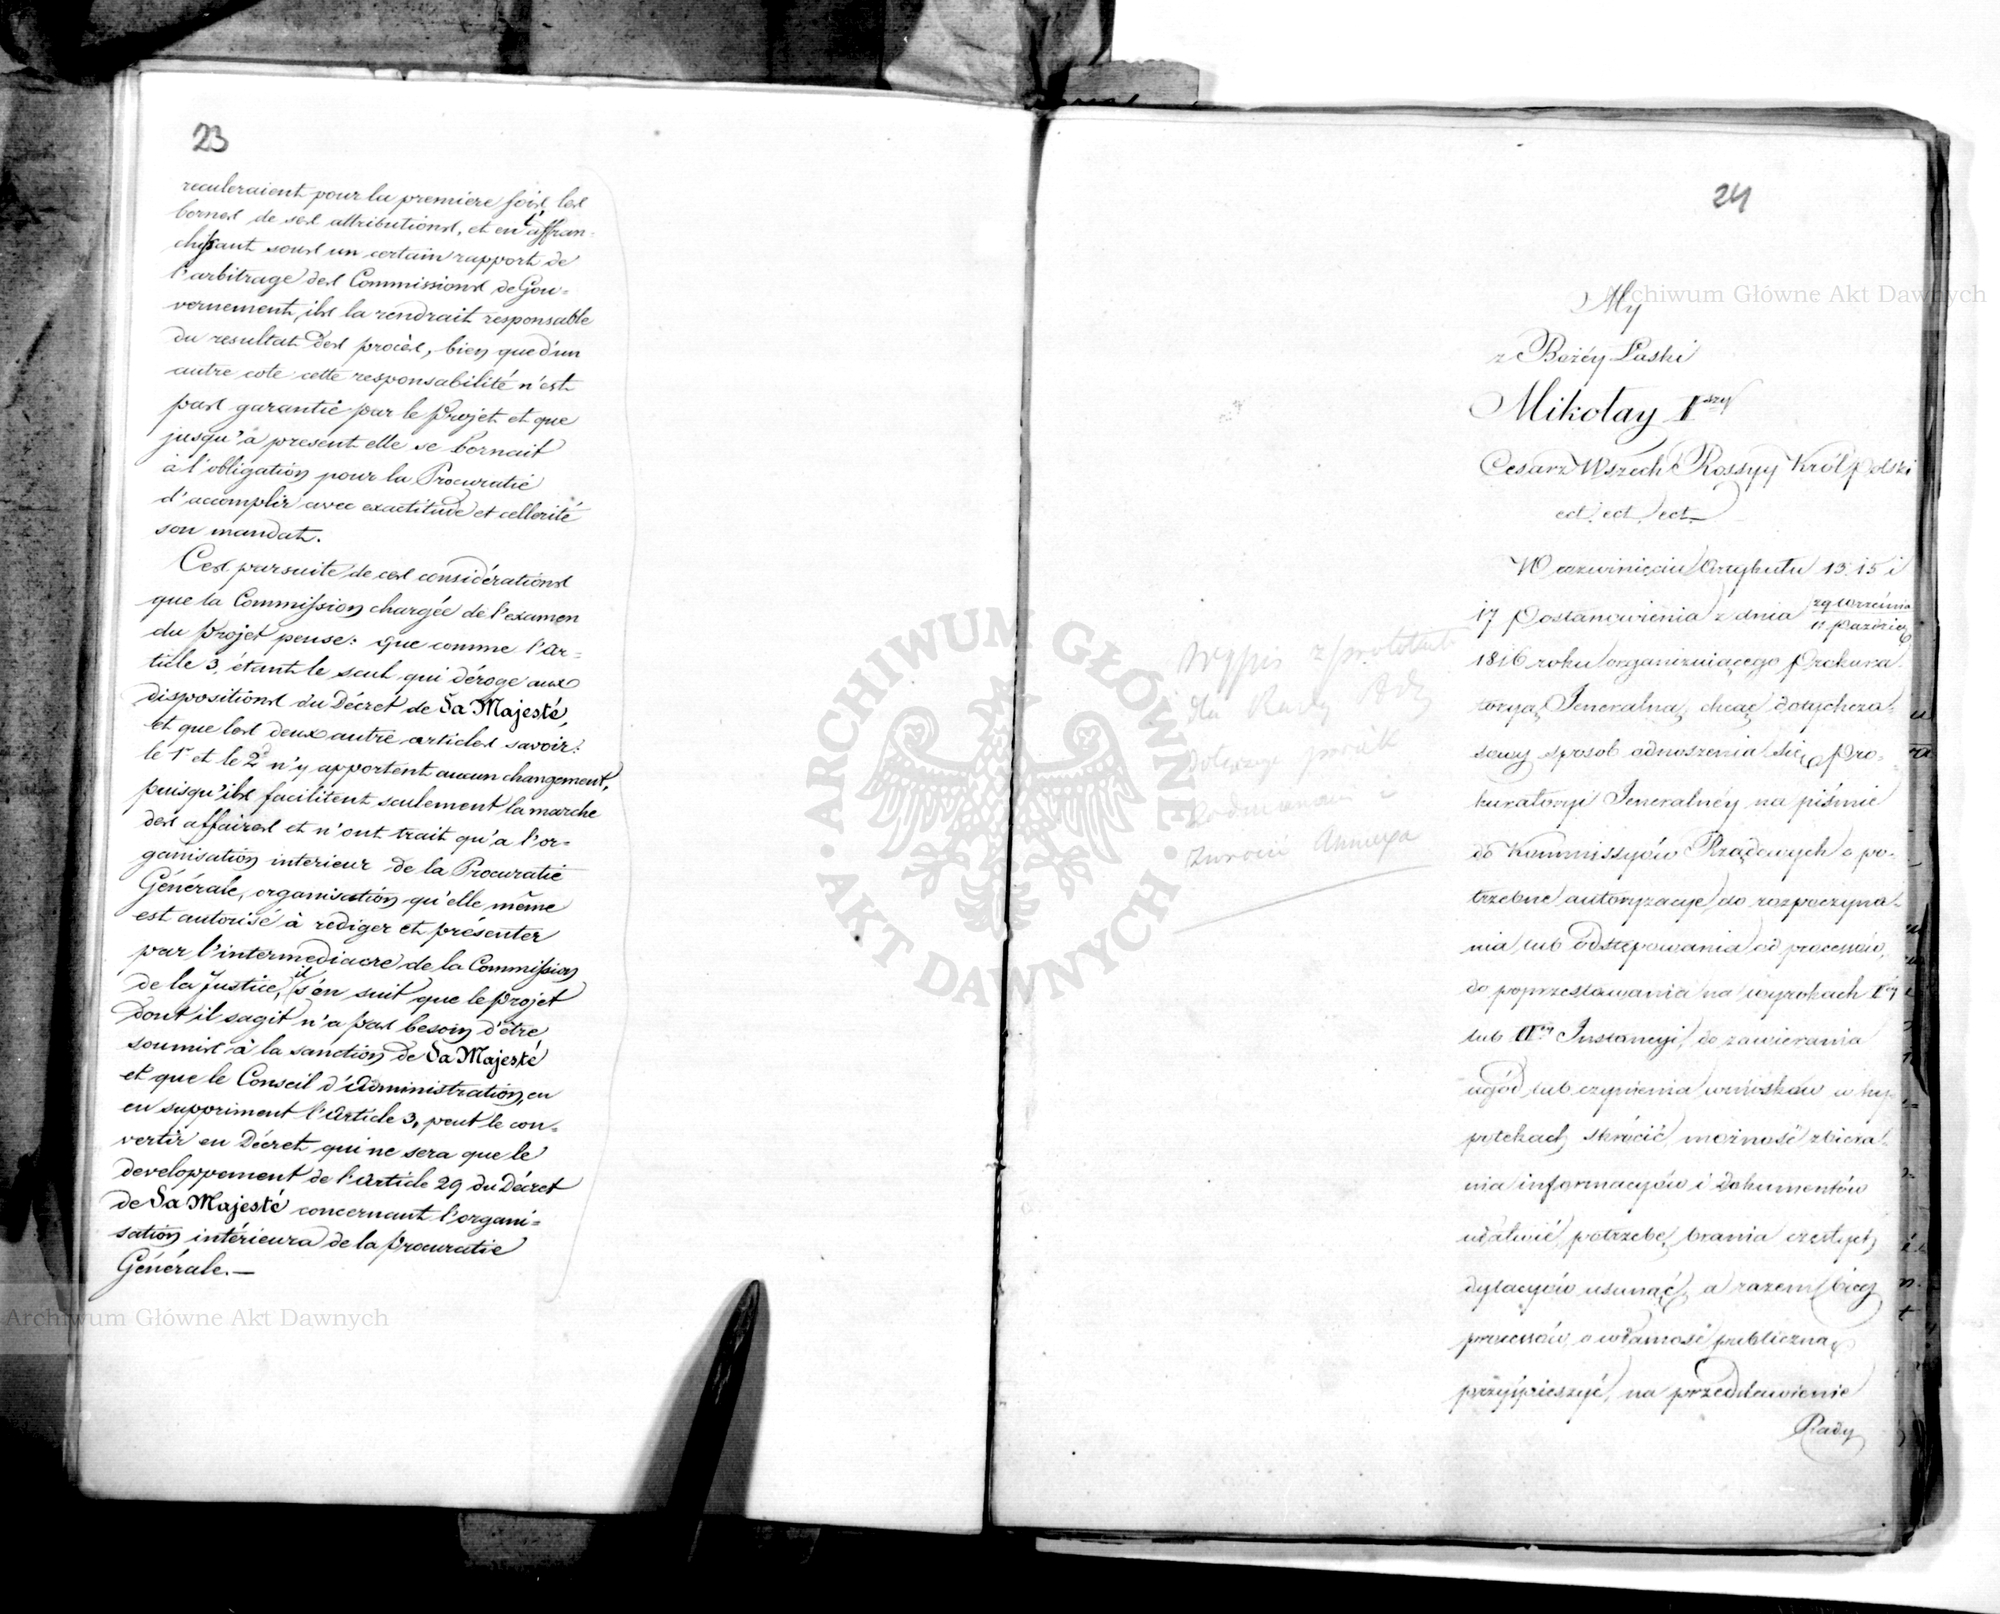 23
reculeraient pour la premiere fois les
bornes de ses attributions, et en l'affran-
chissant sous un certain rapport de
l'arbitrage des Commissions de Gou-
vernement, ils la rendrait responsable
du resultat des procès, bien que d'un
autre cote cette responsabilité n'est
pas garantie par le Projet et que
jusqu'à present elle se bornait
à l'obligation pour la Procuratie
d'accomplir avec exactitude et cellerité
son mandat.
C'est par suite de ces considérations
que la Commission chargée de l'examen
du Projet pense: que comme l'ar-
ticle 3, étant le seul qui déroge aux
dispositions du Décret de Sa Majesté,
et que les deux autre articles savoir:
le 1r et le 2d n'y apportent aucun changement,
puisqu'ils facilitent seulement la marche
des affaires et n'ont trait qu'a l'or-
ganisation interieur de la Procuratie
Générale, organisation qu'elle même
est autorisé à rediger et présenter
par l'intermediacre de la Commission
de la Justice, il s'en suit que le projet
dont il sagit n'a pas besoin d'être
soumis à la sanction de Sa Majesté
et que le Conseil d'Administration, en
en suppriment l'Article 3, peut le con-
vertir en Décret qui ne sera que le
developpement de l'Article 29 du Décret
de Sa Majesté concernant l'organi-
sation intérieura de la Procuratie
Générale.—
24
My
z Bożéy Łaski
Mikołay Iszy
Cesarz Wszech Rossyy Król Polski
ect. ect. ect.
W rozwinięciu Artykułu 13. 15 i
17 Postanowienia z dnia 29 Września
11 Paździer
1816 roku organizuiącego Prokura-
toryą Jeneralną, chcąc dotychcza-
sowy sposob odnoszenia się Pro-
kuratoryi Jeneralnéy na piśmie
do Kommissyów Rządowych o po-
trzebne autoryzacye do rozpoczyna-
nia lub odstępowania od processów,
do poprzestawania na wyrokach Iéy
lub IIéy Instancyi, do zawierania
ugód lub czynienia wniosków w hy-
potekach skrócić, możność zbiera-
nia informacyów i dokumentów
ułatwić, potrzebę brania częstych
dylacyów usunąć, a razem bieg
processów o własność publiczną
przyśpieszyć, na przedstawienie
Rady
Wypis z protokułu
dla Rady Ad
Archiwum Główne Akt Dawnych
Archiwum Główne Akt Dawnych
ARCHIWUM GŁÓWNE
AKT DAWNYCH